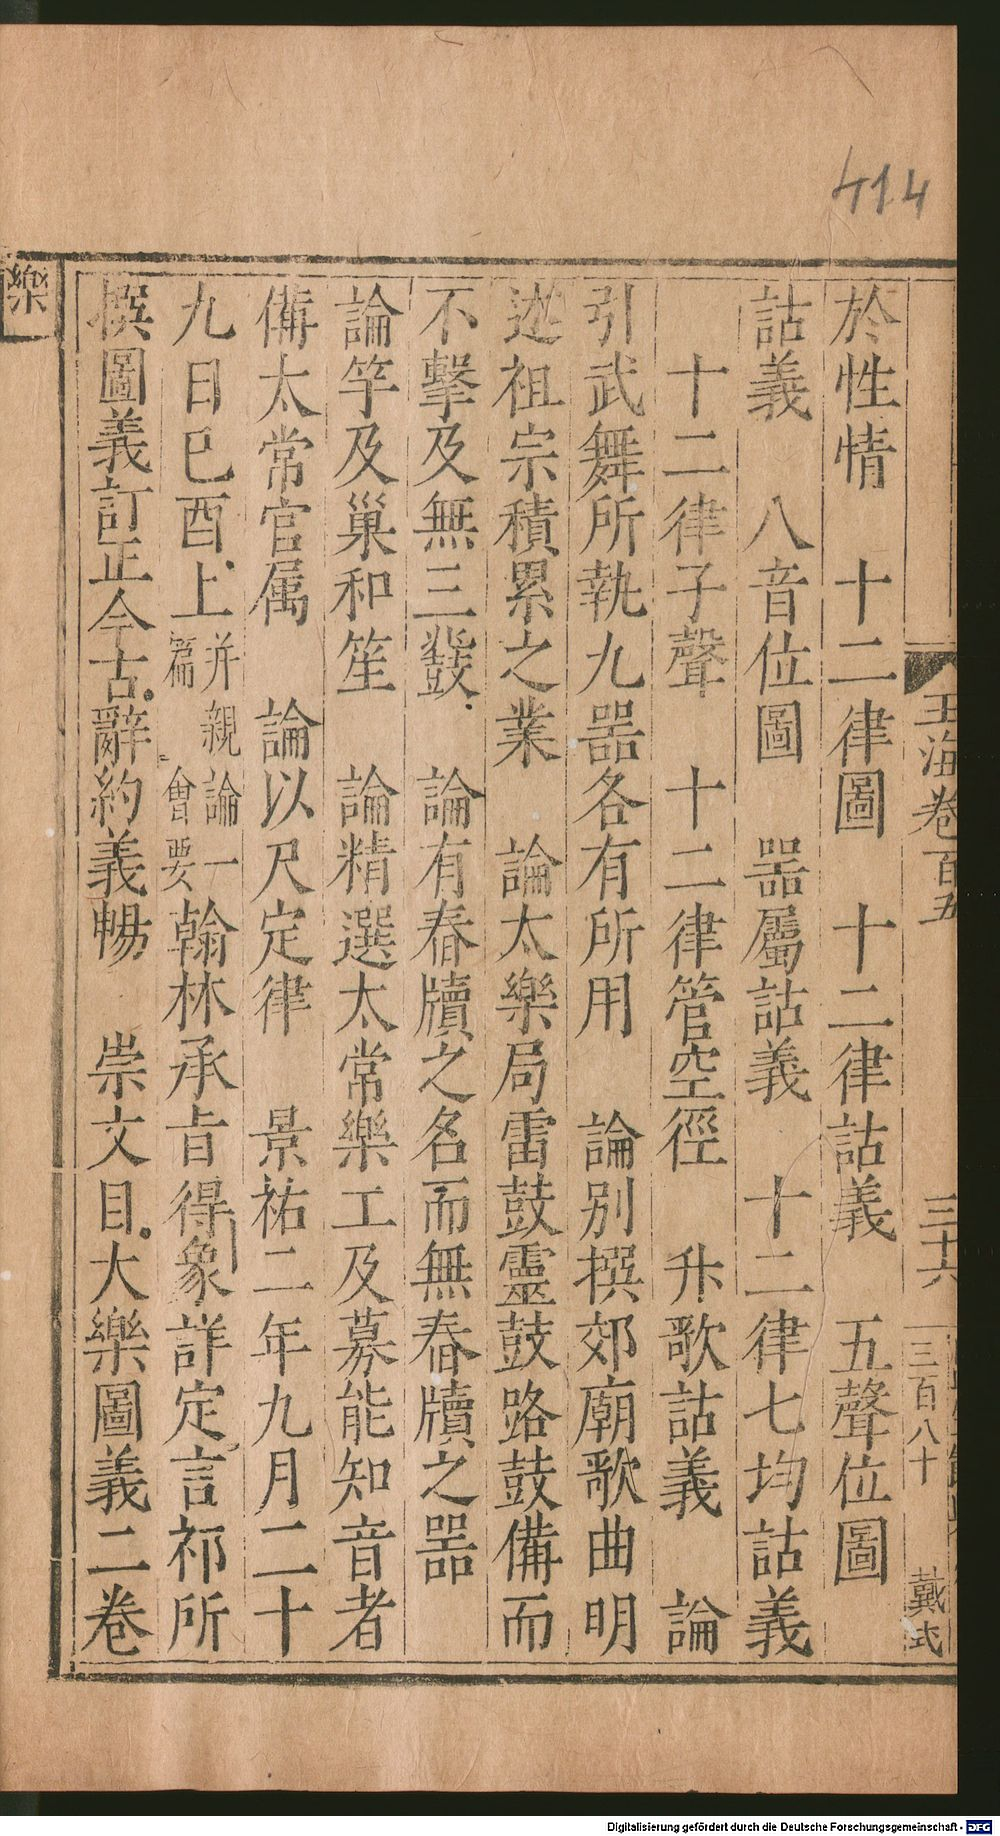 414
玉海卷百五
三十六
三百八十
戴式
於性情　十二律圖　十二律詁義　五聲位圖
詁義　八音位圖　器屬詁義　十二律七均詁義
十二律子聲　十二律管空徑　升歌詁義　論
引武舞所執九器各有所用　論別撰郊廟歌曲明
述祖宗積累之業　論太樂局雷鼓靈鼓路鼓備而
不擊及無三鼗　論有舂牘之名而無舂牘之器
論竽及巢和笙　論精選太常樂工及募能知音者
備太常官属　論以尺定律　景祐二年九月二十
九日巳酉上并親論一篇會要翰林承旨得象詳定言祁所
撰圖義訂正今古辭約義暢　崇文目大樂圖義二卷
樂
Digitalisierung gefördert durch die Deutsche Forschungsgemeinschaft - DFG